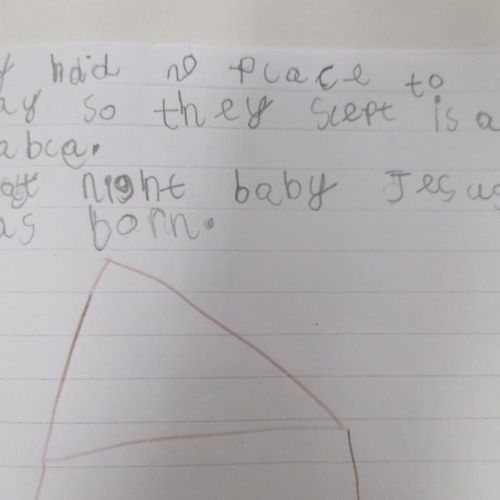 y had no place to
ay so they slept is a
abca.
at night baby Jesus
as born.